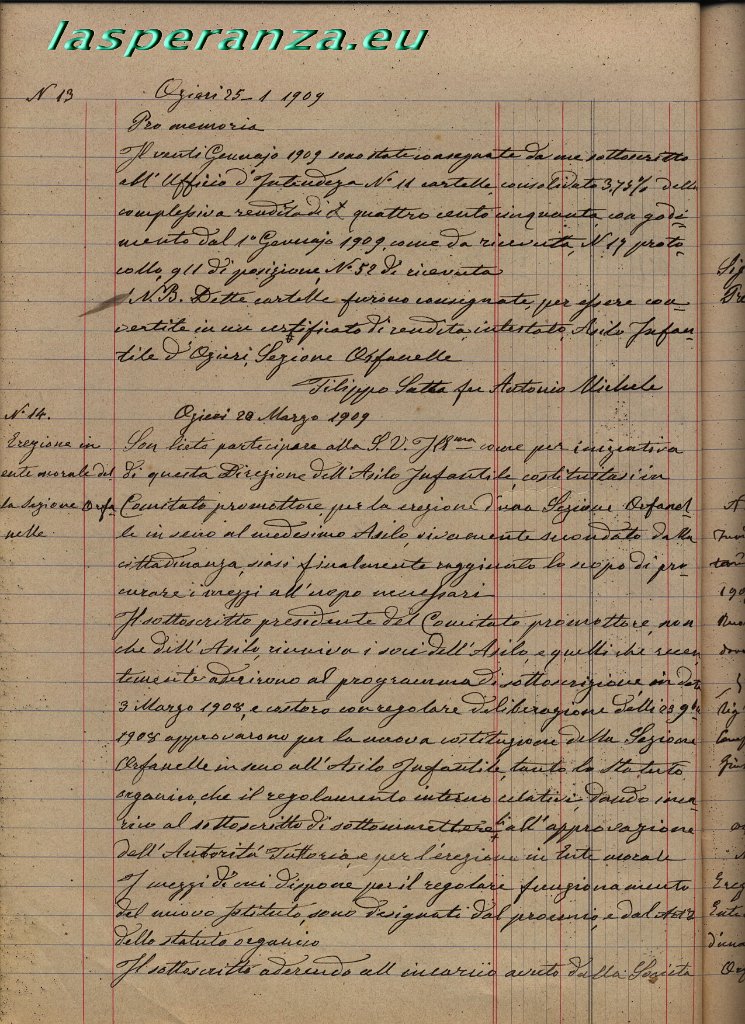 lasperanza.eu
N 13 Ozieri 25-1 1909
Pro memoria
Il venti Gennajo 1909 sono state consegnate da me sottoscritto
all'Ufficio d'Intendeza N° 11 cartelle consolidato 3,75% della
complessiva rendita di £ quattro cento cinquanta, con godi-
mento dal 1° Gennajo 1909, come da ricevuta, N. 17 proto-
collo, 911 di posizione, N° 52 di ricevuta
N.B. Dette cartelle furono consegnate, per essere con-
vertite in un certificato di rendita, intestato, Asilo Infan-
tile d'Ozieri, Sezione Orfanelle
Filippo Satta fu Antonio Michele
N° 14. Ozieri 20 Marzo 1909
Erezione in
ente morale del
la Sezione Orfa-
nelle
Son lieto partecipare alla S.V. Ill.ma come per iniziativa
di questa Direzione dell'Asilo Infantile, costituitasi in
Comitato promottore per la erezione d'una Sezione Orfanel-
le in seno al medesimo Asilo, vivamente secondato dalla
cittadinanza, siasi finalmente raggiunto lo scopo di pro-
curare i mezzi all'uopo necessari
Il sottoscritto presidente del Comitato promottore, non
che dell'Asilo, riuniva i soci dell'Asilo, e quelli che recen
temente aderirono al programma di sottoscrizione, in data
3 Marzo 1908, e costoro con regolare deliberazione delli 23 9bre
1908 approvarono per la nuova costituzione della Sezione
Orfanelle in seno all'Asilo Infantile, tanto lo statuto
organico, che il regolamento interno relativi, dando inca-
rico al sottoscritto di sottommetterli all'approvazione
dell'Autorità Tuttoria, e per l'erezione in Ente morale
I mezzi di cui dispone per il regolare funzionamento
del nuovo Istituto, sono designati dal proemio, e dal Art 2
dello statuto organico
Il sottoscritto aderendo all incarico avuto dalla Società